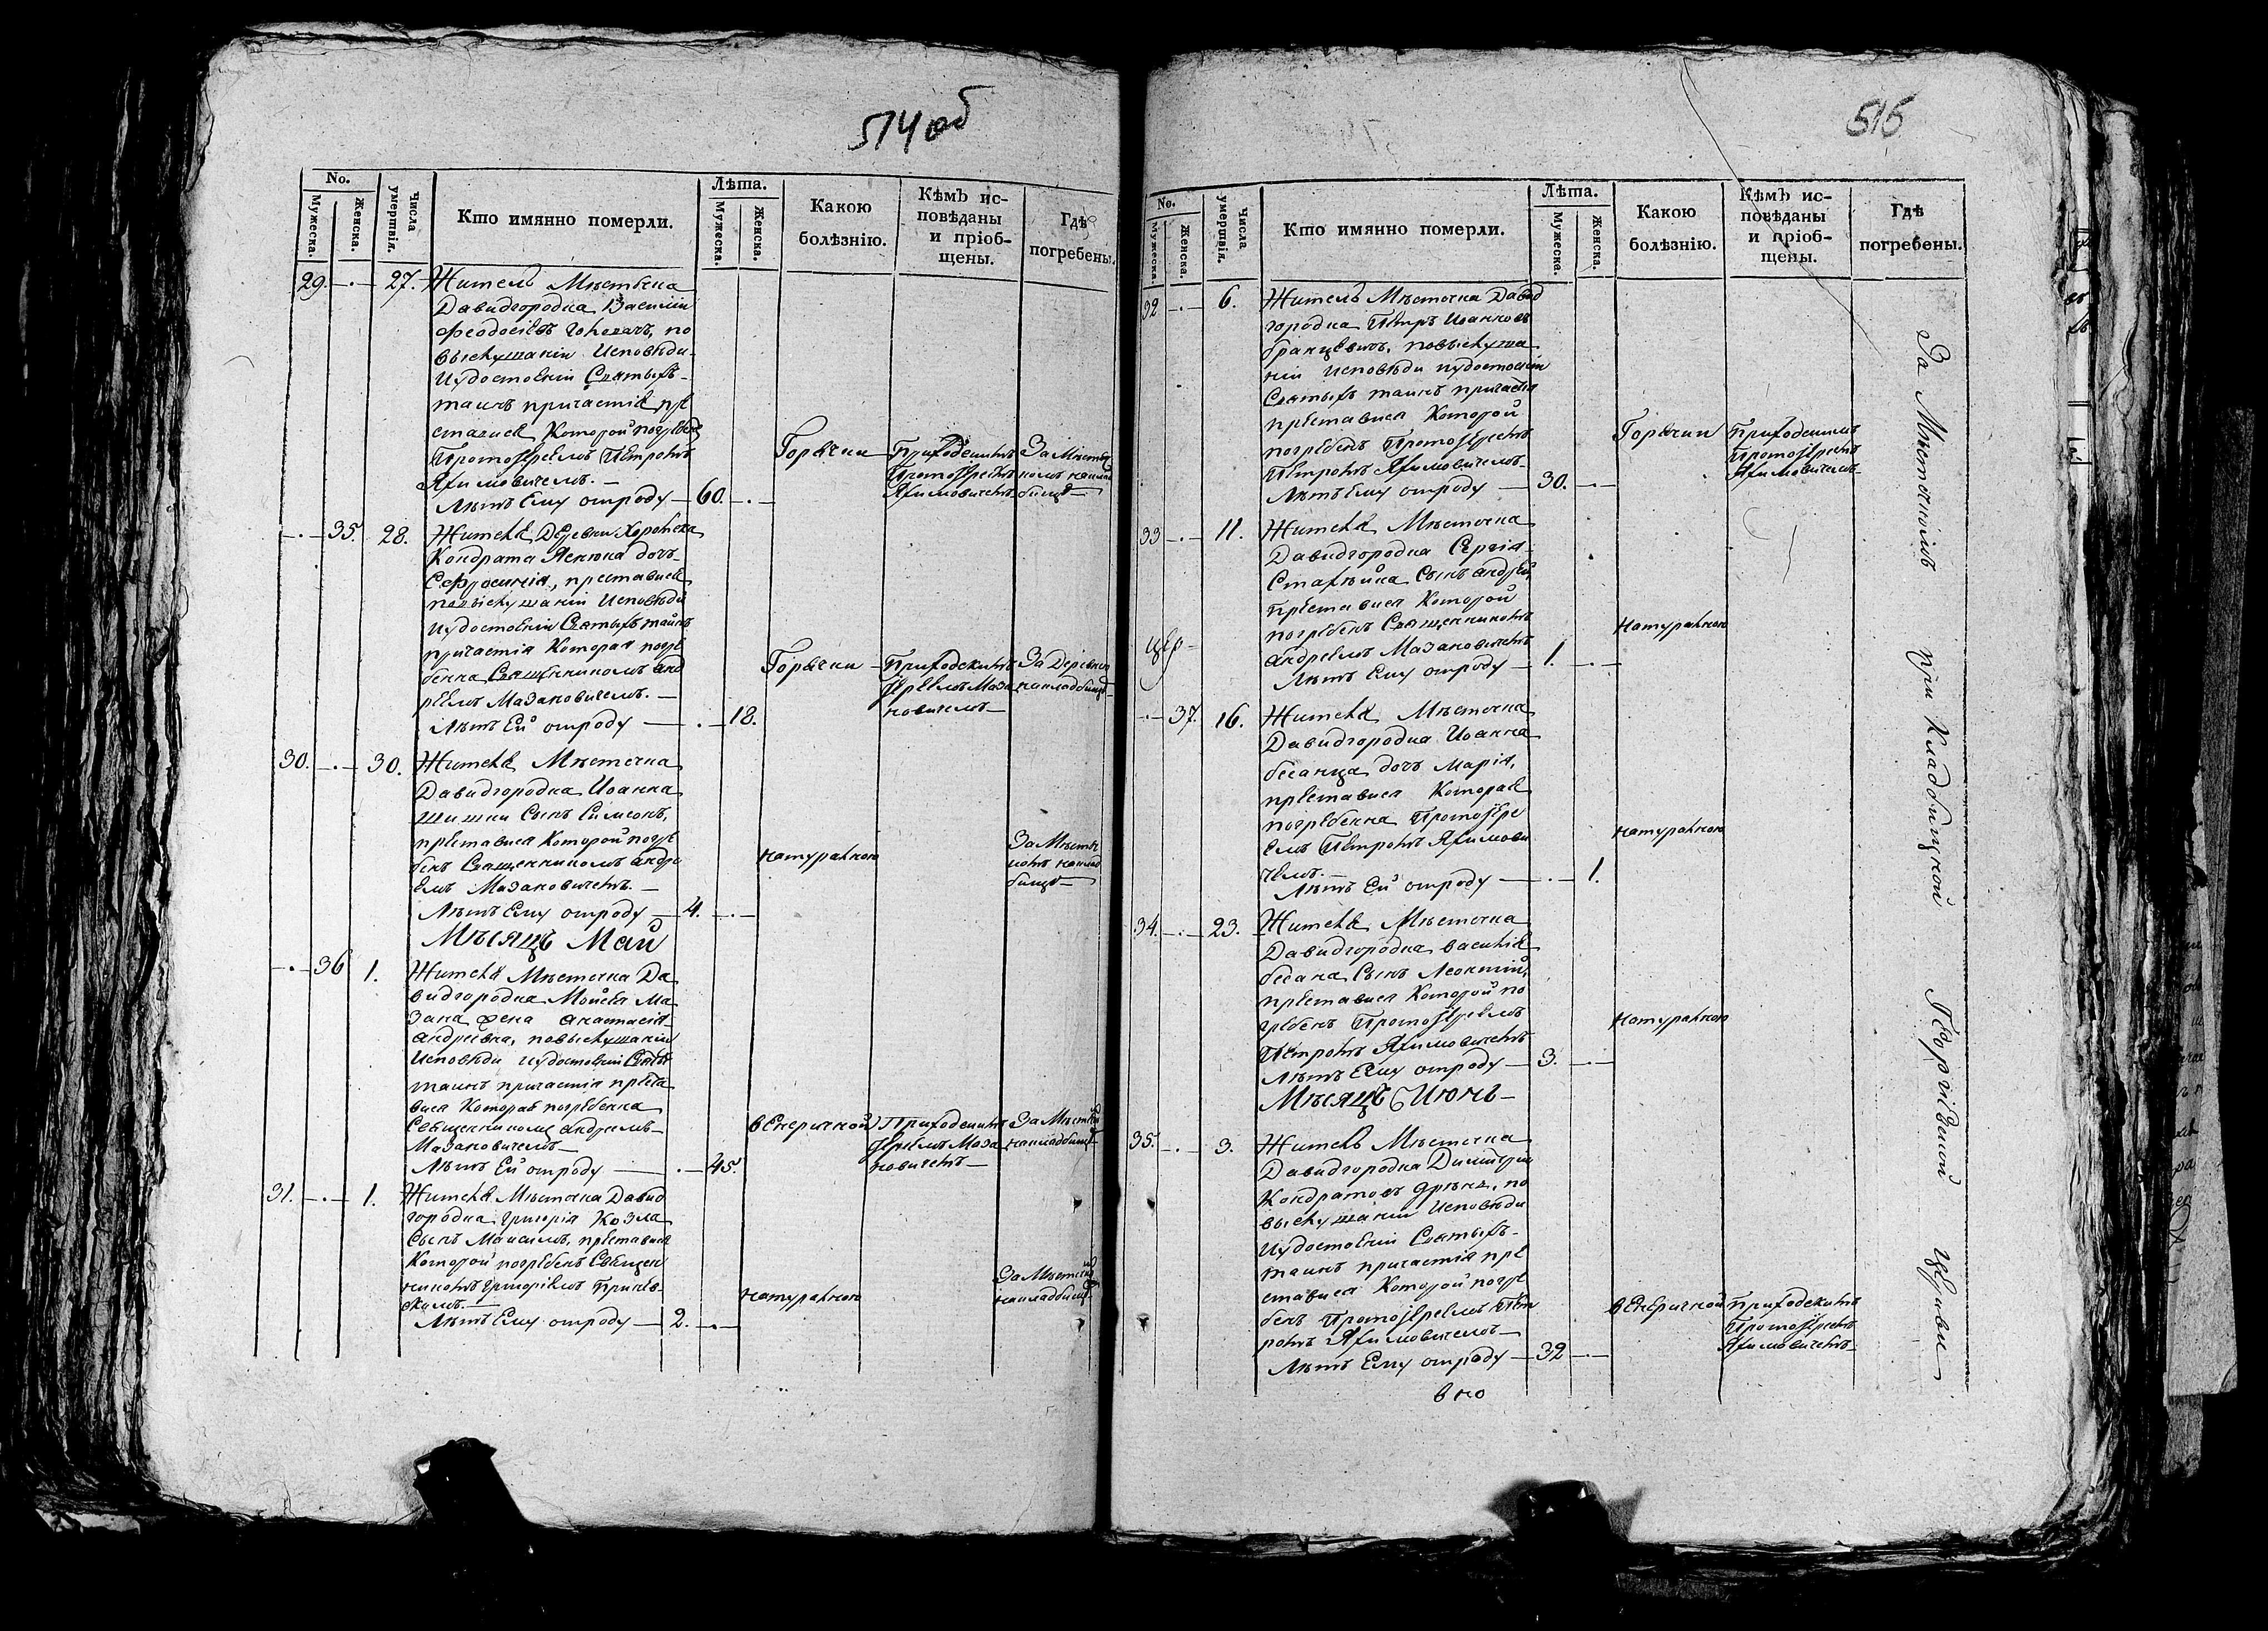 514 об
No.
Мужеска.
Женска.
Числа умершвія.
Кто имянно померли.
Лѣта.
Мужеска.
Женска.
Какою болѣзнію.
Кѣмъ ис-
повѣданы
и пріоб-
щены.
Гдѣ
погребены.
29. 27. Житель Мѣстечка
Давидгородка Василій
Феодосіевъ по
выслушаніи Исповѣди
и удостоеніи Святыхъ
таинъ причастія пре
ставися Которой погребенъ
Протоіереемъ Петромъ
Якимовичемъ.
Лѣтъ Ему отроду 60.
Горячки
Приходскимъ
Протоіереемъ
Якимовичемъ
За Мѣстеч
комъ наклад
бищѣ
35. 28. Жителя Деревни Хорска
Кондрата дочъ
Ефросинія, преставися
повыслушаніи Исповѣди
и удостоеніи Святыхъ таинъ
причастія Которая погре
бенна Священникомъ анд
реемъ Мазановичемъ.
Лѣтъ Ей отроду 18.
Горячки
Приходскимъ
Іереемъ Маза
новичемъ
За Деревнею
накладбищѣ
30. 30. Жителя Мѣстечка
Давидгородка Иоанна
Шишки Сынъ Симеонъ,
преставися Которой погре
бенъ Священникомъ андре
емъ Мазановичемъ.
Лѣтъ Ему отроду 4.
натуральною
За Мѣстеч
комъ наклад
бищѣ
Мѣсяцъ Май
36 1. Жителя Мѣстечка Да
видгородка Моисея Ма
зана жена анастасія
андреевна, повыслушаніи
Исповѣди и удостоеніи Святыхъ
таинъ причастія преста
вися Которая погребенна
Священникомъ андреемъ
Мазановичемъ
Лѣтъ Ей отроду 45.
венеричной
Приходскимъ
Іереемъ Маза
новичемъ
За Мѣстечкомъ
накладбищѣ
31. 1. Жителя Мѣстечка Давид
городка григорія Козла
Сынъ Максимъ, преставися
Которой погребенъ Священ
никомъ григоріемъ
Лѣтъ Ему отроду 2.
натуральною
За Мѣстечком
накладбищѣ
515
No.
Мужеска.
Женска.
Числа умершвія.
Кто имянно померли.
Лѣта.
Мужеска.
Женска.
Какою
болѣзнію.
Кѣмъ ис-
повѣданы
и пріоб-
щены.
Гдѣ
погребены.
32 6. Житель Мѣстечка Давид
городка Петръ Иоанновъ
бранцевичъ, повыслуша
ніи Исповѣди и удостоеніи
Святыхъ таинъ причастія
преставися Которой
погребенъ Протоіереемъ
Петромъ Якимовичемъ
Лѣтъ Ему отроду 30.
Горячки
Приходскимъ
Протоіереемъ
Якимовичемъ
33 11. Жителя Мѣстечка
Давидгородка Сергія
Сынъ андрей,
преставися Которой
погребенъ Священникомъ
андреемъ Мазановичемъ
Лѣтъ Ему отроду 1.
натуральною
37. 16. Жителя Мѣстечка
Давидгородка Иоанна
бесанца дочъ Марія,
преставися Которая
погребенна Протоіере
емъ Петромъ Якимови
чемъ.
Лѣтъ Ей отроду 1.
натуральною
34. 23. Жителя Мѣстечка
Давидгородка василія
бесана Сынъ Леонтій,
преставися Которой по
гребенъ Протоіереемъ
Петромъ Якимовичемъ
Лѣтъ Ему отроду 3.
натуральною
Мѣсяцъ Июнь
35. 3. Житель Мѣстечка
Давидгородка Димитрій
Кондратовъ по
выслушаніи Исповѣди
и удостоеніи Святыхъ
таинъ причастія пре
ставися Которой погре
бенъ Протоіереемъ Пет
ромъ Якимовичемъ
Лѣтъ Ему отроду 32
венеричной
Приходскимъ
Протоіереемъ
Якимовичемъ
За Мѣстечкомъ при Кладбищной Георгіевской Церкви